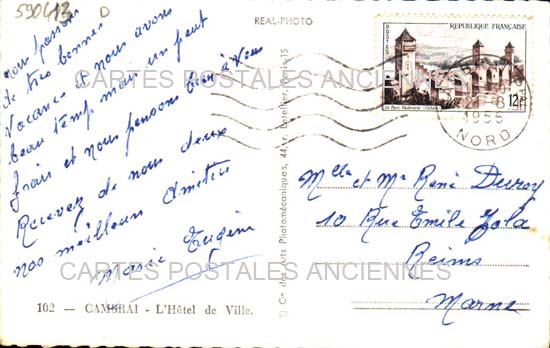 590413 D
REAL-PHOTO
nous passons
de très bonnes
vacances et nous avons
beau temp mais un peut
frais et nous pensons bien à vous
Recevez de nous deux
nos meilleurs Amitiés
Marie Eugène
102 — CAMBRAI - L'Hôtel de Ville.
Cie des Arts Photomécaniques, 44, r. Letellier, Paris-15
POSTES
REPUBLIQUE FRANÇAISE
12F
21 -8
1955
NORD
Mlle et Mr René Duroy
10 Rue Emile Zola
Reims
Marne
CARTES POSTALES ANCIENNES
CARTES POSTALES ANCIENNES